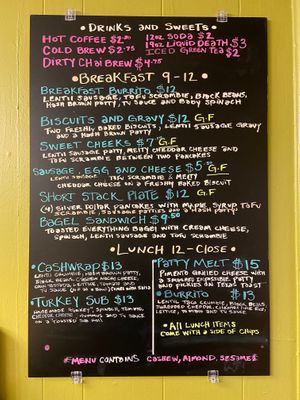 • DRINKS AND SWEETS •
HOT COFFEE $2.50
12oz SODA $2
COLD BREW $2.75
19oz LIQUID DEATH $3
ICED GREEN TEA $2
DIRTY CHAI BREW $4.75
• BREAKFAST 9-12 •
BREAKFAST BURRITO $12
LENTIL SAUSAGE, TOFU SCRAMBLE, BLACK BEANS,
HASH BROWN PATTY, TV SAUCE AND BABY SPINACH
BISCUITS AND GRAVY $12 G.F
TWO FRESHLY BAKED BISCUITS, LENTIL SAUSAGE GRAVY
AND A HASH BROWN PATTY
SWEET CHEEKS $7 G.F
LENTIL SAUSAGE PATTY, MELTY CHEDDAR CHEESE AND
TOFU SCRAMBLE BETWEEN TWO PANCAKES
SAUSAGE, EGG AND CHEESE $5.50 G.F
LENTIL SAUSAGE, TOFU SCRAMBLE & MELTY
CHEDDAR CHEESE ON A FRESHLY BAKED BISCUIT
SHORT STACK PLATE $12 G.F
(4) SILVER DOLLAR PANCAKES WITH MAPLE SYRUP TOFU
SCRAMBLE, SAUSAGE PATTIES AND A HASH PATTY
BAGEL SANDWICH $9.50
TOASTED EVERYTHING BAGEL WITH CREAM CHEESE,
SPINACH, LENTIL SAUSAGE AND TOFU SCRAMBLE
• LUNCH 12-CLOSE •
• CASHWRAP $13
LENTIL CRUMBLE, HASH BROWN PATTY,
BLACK BEANS, CASHEW CHEESE,
TOMATO AND
TV SAUCE
• TURKEY SUB $13
HOUSEMADE TURKEY, SPINACH, TOMATO,
CHEDDAR CHEESE, HUMMUS AND TV SAUCE
ON A TOASTED SUB ROLL
PATTY MELT $15
PIMENTO CHEESE WITH
A SMASHED IMPOSSIBLE PATTY
AND PICKLES ON TEXAS TOAST
• BURRITO $13
LENTIL TACO CRUMBLE, BLACK BEANS
SHREDDED CHEDDAR, RICE,
LETTUCE, TOMATO AND TV SAUCE
• ALL LUNCH ITEMS
COME WITH A SIDE OF CHIPS
*MENU CONTAINS CASHEW, ALMOND, SESAME*